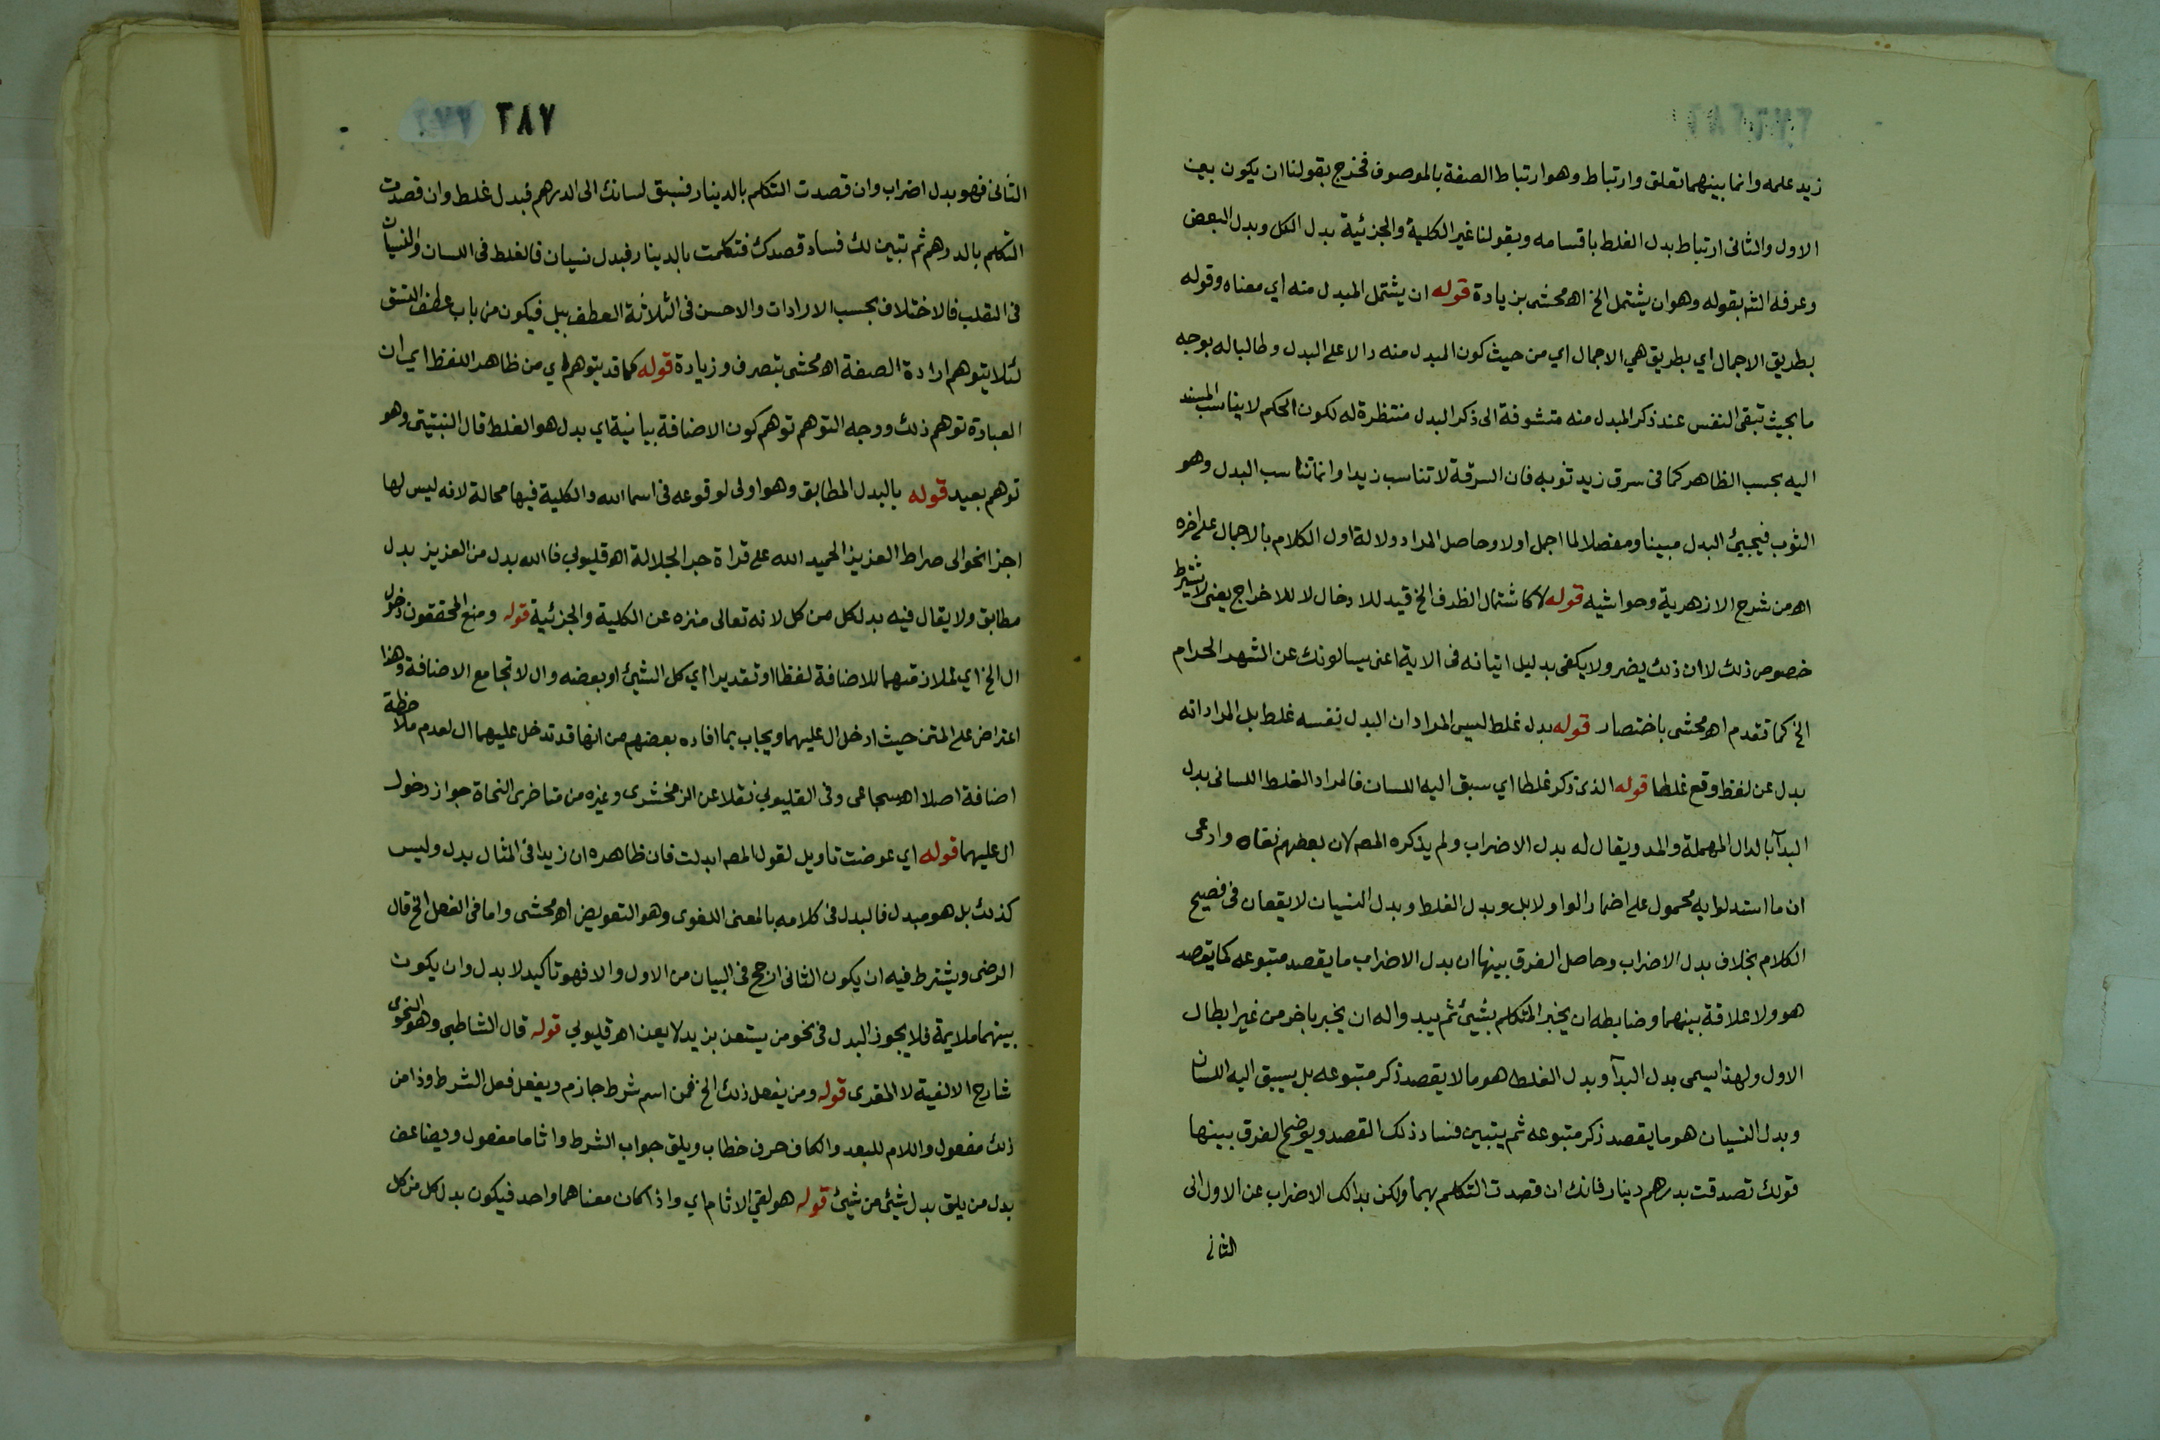 زيد علمه وانما بينهما تعلق وارتباط وهو ارتباط الصفة بالموصوف فخرج بقولنا ان يكون بين
الاول والثانى ارتباط بدل الغلط باقسامه وبقولنا غير الكلية والجزئية بدل الكل وبدل البعض
وعرفه الشم بقوله وهو ان يشتمل الخ اه محشى بزيادة قوله ان يشتمل المبدل منه اي معناه وقوله
بطريق الاجمال اي بطريق هي الاجمال اي من حيث كون المبدل منه دالا على البدل وطالبا له بوجه
ما بحيث تبقى النفس عند ذكر المبدل منه متشوفة الى ذكر البدل منتظرة له لكون الحكم لا يناسب المسند
اليه بحسب الظاهر كما فى سرق زيد ثوبه فان السرقة لا تناسب زيدا وانما تناسب البدل وهو
الثوب فيجيئ البدل مبينا ومفصلا لما اجمل اولا وحاصل المراد دلالة اول الكلام بالاجمال على اخره
اه من شرح الازهرية وحواشيه قوله لا كاشتمال الظرف الخ قيد للادخال لا للاخراج يعنى لا يشترط
خصوص ذلك لا ان ذلك يضر ولا يكفى بدليل اتيانه فى الاية اعنى يسالونك عن الشهر الحرام
الخ كما تقدم اه محشى باختصار قوله بدل غلط ليس المراد ان البدل نفسه غلط بل المراد انه
بدل عن لفظ وقع غلطا قوله الذى ذكر غلطا اي سبق اليه اللسان فالمراد الغلط اللسانى بدل
البدآ بالدال المهملة والمد ويقال له بدل الاضراب ولم يذكره المص لان بعضهم نفاه وادعى
ان ما استدلوا به محمول على اضمار الواو لا بل وبدل الغلط وبدل النسيان لا يقعان فى فصيح
الكلام بخلاف بدل الاضراب وحاصل الفرق بينها ان بدل الاضراب ما يقصد متبوعه كما يقصد
هو ولا علاقة بينهما وضابطه ان يخبر المتكلم بشيئ ثم يبدواله ان يخبر باخر من غير ابطال
الاول ولهذا يسمى بدل البدآ وبدل الغلط هو ما لا يقصد ذكر متبوعه بل يسبق اليه اللسان
وبدل النسيان هو ما يقصد ذكر متبوعه ثم يتبين فساد ذلك القصد ويوضح الفرق بينها
قولك تصدقت بدرهم دينار فانك ان قصدت التكلم بهما ولكن بدالك الاضراب عن الاول الى
الثانى
٢٨٧
الثانى فهو بدل اضراب وان قصدت التكلم بالدينار فسبق لسانك الى الدرهم فبدل غلط وان قصدت
التكلم بالدرهم ثم تبين لك فساد قصدك فتكلمت بالدينار فبدل نسيان فالغلط فى اللسان والنسيان
فى القلب فالاختلاف بحسب الارادات والاحسن فى الثلاثة العطف ببل فيكون من باب عطف النسق
لئلا يتوهم ارادة الصفة اه محشى بتصرف وزيادة قوله كما قد يتوهم اي من ظاهر اللفظ اي ان
العبارة توهم ذلك ووجه التوهم توهم كون الاضافة بيانية اي بدل هو الغلط قال النبتيتى وهو
توهم بعيد قوله بالبدل المطابق وهو اولى لوقوعه فى اسما الله والكلية فيها محالة لانه ليس لها
اجزا نحو الى صراط العزيز الحميد الله على قراة جر الجلالة اه قليوبي فالله بدل من العزيز بدل
مطابق ولا يقال فيه بدل كل من كل لانه تعالى منزه عن الكلية والجزئية قوله ومنع المحققون دخول
ال الخ اي لملازمتهما للاضافة لفظا او تقديرا اي كل الشيئ او بعضه وال لا تجامع الاضافة وهذا
اعتراض على المتن حيث ادخل ال عليهما ويجاب بما افاده بعضهم من انها قد تدخل عليهما ال لعدم ملاحظة
اضافة اصلا اه سجاعى وفى القليوبي نقلا عن الزمخشرى وغيره من متاخرى النحاة جواز دخول
ال عليهما قوله اي عوضت تاويل لقول المص ابدلت فان ظاهره ان زيدا فى المثال بدل وليس
كذلك بل هو مبدل فالبدل فى كلامه بالمعنى اللغوى وهو التعويض اه محشى واما فى الفعل الخ قال
الرضى ويشترط فيه ان يكون الثانى ارجح فى البيان من الاول والا فهو تاكيد لا بدل وان يكون
بينهما ملايمة فلا يجوز البدل فى نحو من يستعن بزيد لا يعن اه قليوبي قوله قال الشاطبى وهو النحوى
شارح الالفية لا المقرى قوله ومن يفعل ذلك الخ فمن اسم شرط جازم ويفعل فعل الشرط وذا من
ذلك مفعول واللام للبعد والكاف حرف خطاب ويلق جواب الشرط واثاما مفعول ويضاعف
بدل من يلق بدل شيئ من شيئ قوله هو لقي الاثام اي واذا كان معناهما واحد فيكون بدل كل من كل